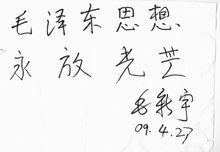 毛泽东思想
永放光芒
毛新宇
09.4.27